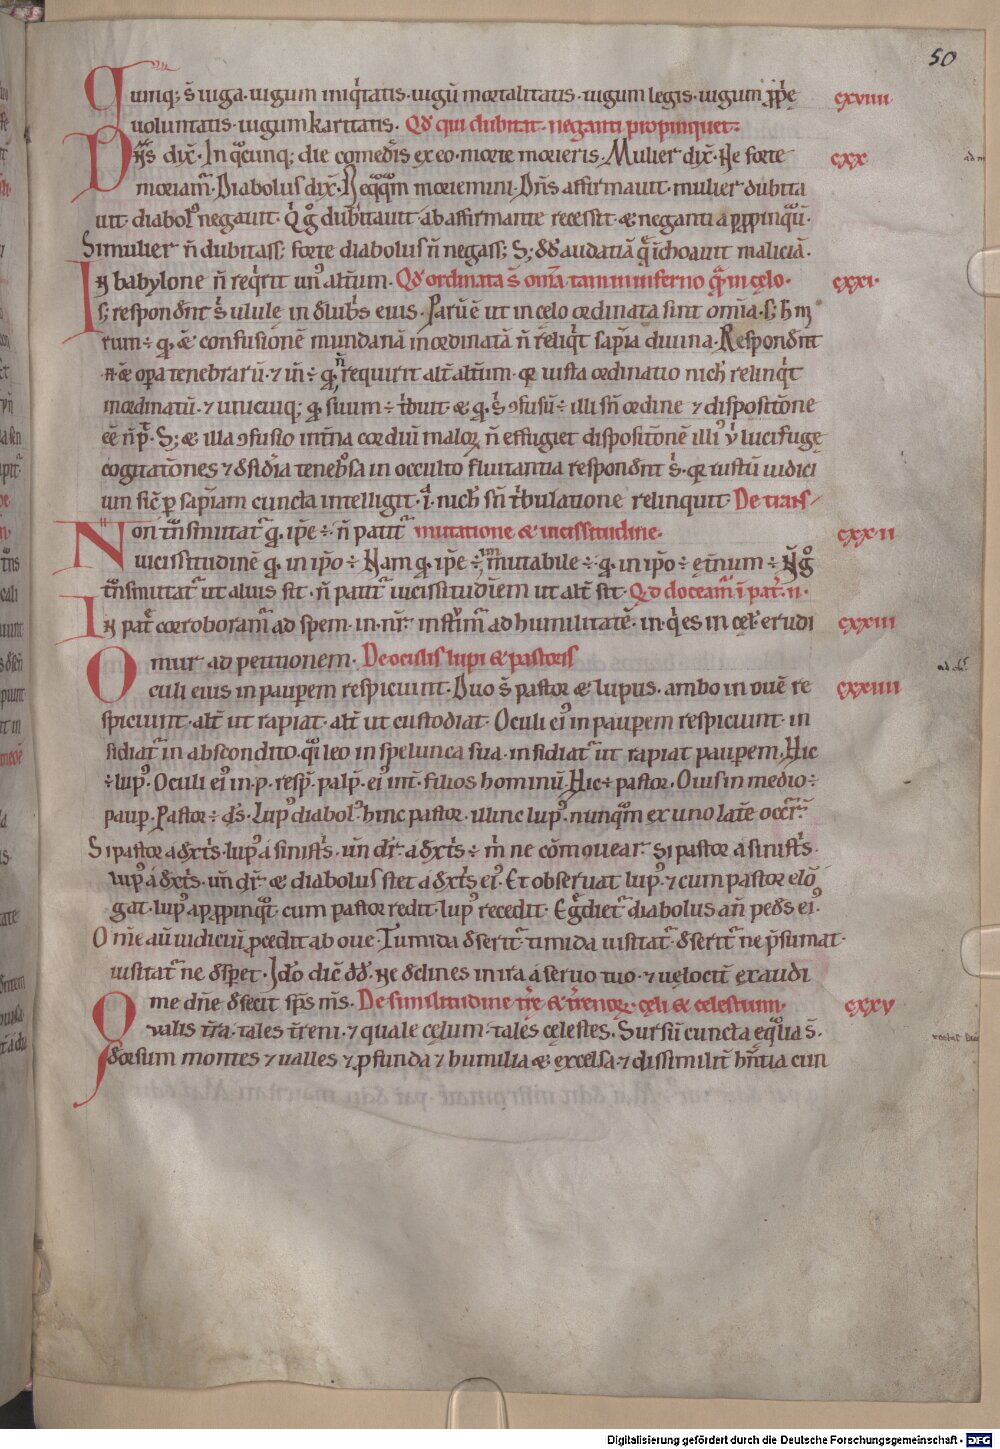 50
Quinq; s̄ iuga. iugum iniq̇tatis. iugū mortalitatis. iugum legis. iugum ꝓp̄ę cxviiii
uoluntatis. iugum karitatis. Qd qui dubitat. neganti propinquet.
Dn̄s dix̄. In q̊cunq; die comed̄is ex eo. morte morieris. Mulier dix̄. Ne forte cxx
moriam᷑. Diabolus dix̄. Neq̄q̄m moriemini. Dn̄s affirmauit. mulier dubita
uit. diabol᷒ negauit. Q̇ g̊ dubitauit. ab affirmante recessit. & neganti appropinq̊u̅.
Si mulier n̄ dubitass; forte diabolus n̄ negass; S; dd audatiā q̄ īchoauit maliciā.
In babylone n̄ req̇rit un᷒ alt̄um. Qd ordinata s̄ om̄ia. tam in inferno q̄m in cęlo. cxxi.
S; respondn̄t ṡ ulule in dlub̄s eius. Parū ē ut in celo ordinata sint om̄ia. s; h m̄
rum ÷ q. & confusionē mundanā inordinatā n̄ reliq̇t sap̄ia diuina. Respondn̄t
n̄ & op̄a tenebrarū. 7 in̄ ÷ q, n̄ requirit alt̄ alt̄um. qr iusta ordinatio nich̄ relinq̇t
inordinatū. 7 unicuiq; q. suum ÷ t̄buit. & q. ṡ ɔfusū ÷ illi sn̄ ordine 7 dispositōne
cogitatōnes 7 dsid̄ia teneb̊sa in occulto fluitantia respondn̄t ṡ. qr iustū iudici
um sic̄ p̱ sap̄iam cuncta intelligit. ī. nich̄ sn̄ t̄bulatione relinquit. De trans
Non t̄nsmutat᷑ q. ip̄e ÷. n̄ patit᷑ mutatione & uicissitudine. cxxii
uicissitudinē q. in ip̄o ÷ Nam q. ip̄e ÷ im̄mutabile ÷. q. in ip̄o ÷ et̄num ÷ N̄ g̊
t̄nsmittat᷑ ut alius sit. n̄ patit᷑ uicissitudinem ut alt̄ sit. Qd doceam᷑ ī pat̄. n̄.
In pat̄ē corroboram᷑ ad spem. in. nr̄. instrim᷑ ad humilitatē. in. q̇ es in cęl᷒. erudi cxxiii
mur ad petitionem. De oculis lupi & pastoris
Oculi eius in paup̱em respiciunt. Duo s̄ pastor & lupus. ambo in ouē re cxxiiii
spiciunt. alt̄ ut rapiat. alt̄ ut custodiat. Oculi ei᷒ in paup̱em respiciunt. in
sidiat᷑ in abscondito. q̊i leo in spelunca sua. insidiat᷑ ut rapiat paup̱em. Hic
÷ lup᷒. Oculi ei᷒ in. p. resp̄. palp̄. ei᷒ int̄. filios hominū. Hic ÷ pastor. Ouis in medio ÷
paup̱. Pastor ÷ d̄s. Lup᷒ diabol᷒. hinc pastor. illinc lup᷒. nunq̄m ex uno latē occr̄r̄.
Si pastor a dxt̄is. lup᷒ a sinist̄s. un̄ dr̄. a dxt̄is ÷ m̄ ne cōmouear. Si pastor a sinist̄s.
lup᷒ a dxt̄is. un̄ dr̄. & diabolus stet a dxt̄is ei᷒. Et obseruat lup᷒. 7 cum pastor elō
gat. lup᷒ appropinq̊t. cum pastor redit. lup᷒ recedit. Eg̊diet᷑ diabolus an̄ peds ei᷒.
Om̄e au̅ iudiciū procedit ab oue. Tumida dserit᷑. timida uisitat᷑. dserit᷑ ne p̄sumat.
uisitat᷑ ne dsp̱et. Id̊o dic̄ dd. Ne dclines in ira a seruo tuo. 7 uelocit̄ exaudi
me dn̄e dfecit sp̄s m̄s. De similitudine t̄re & t̄renor̨. cęli & celestium. cxxv
Qualis t̄ra. tales t̄reni. 7 quale cęlum. tales cęlestes. Sursū cuncta eq̊lia s̄.
dorsum montes 7 ualles 7 profunda 7 humilia & excelsa. 7 dissimilit̄ hn̄tia cun
Digitalisierung gefördert durch die Deutsche Forschungsgemeinschaft - DFG